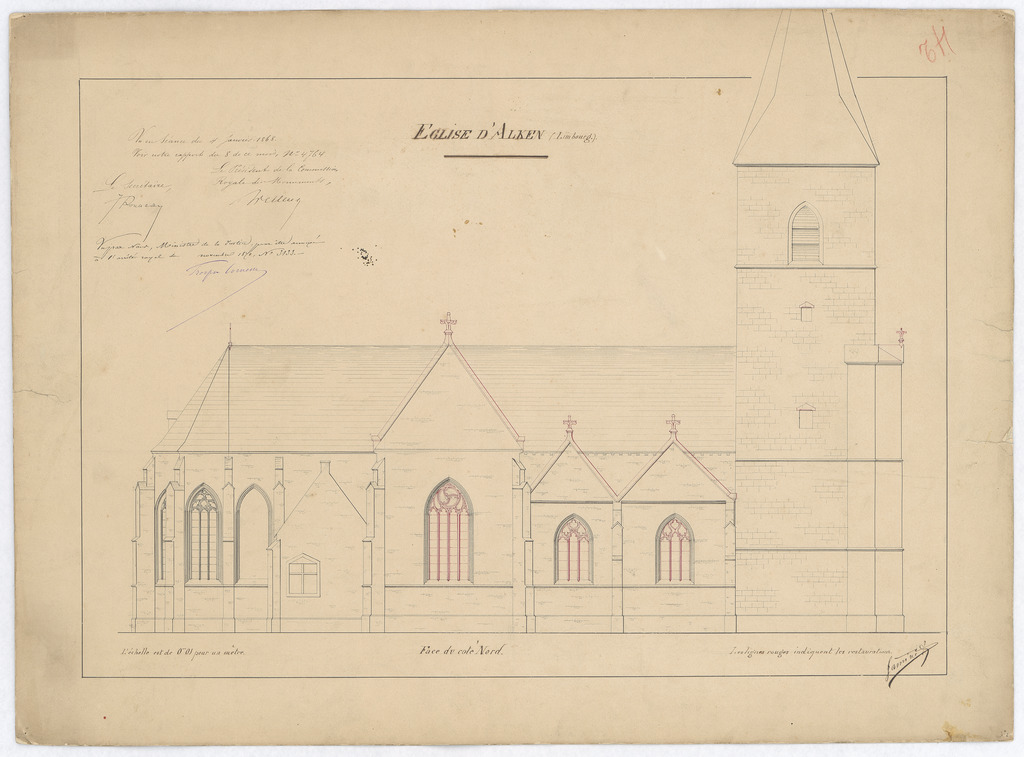 42
EGLISE D'ALKEN (Limbourg).
Vu en séance du 4 Janvier 1868
Voir notre rapport du 8 de ce mois, N° 4764
Le Président de la Commission
Royale des Monuments,
Le Secrétaire,
Vu par Nous, Ministre de la Justice, pour être annexé
à l'arrêté royal du novembre 1870, N°
L'échelle est de 0m01 pour un mètre.
Face du coté Nord.
Les lignes rouges indiquent les restaurations.